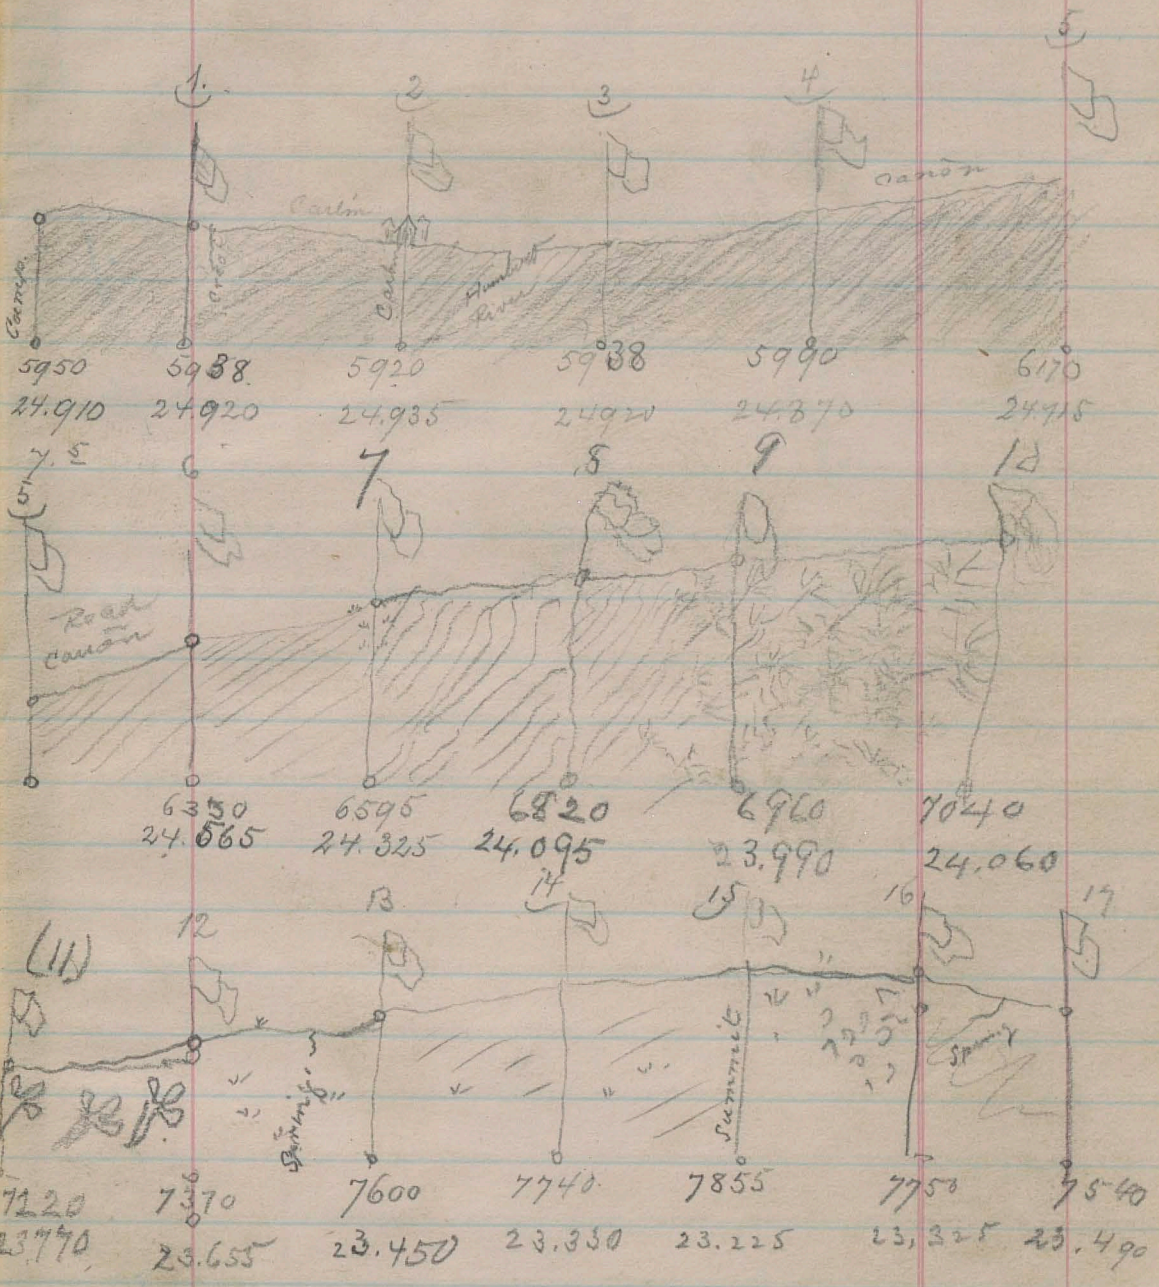 1. 2 3 4 5
Canõn
Carlin
Camp. Creek Carlin Humbolt
River
5950 5938. 5920 5938 5990 6170
24.910 24.920 24.935 24920 24.870 24.715
7.5 6 7 8 9 10
5
Road
Canõn
6330 6595 6820 6960 7040
24.565 24.325 24.095 23.990 24.060
(11) 12 13 14 15 16 17
Springs Summit Spring
7220 7370 7600 7740 7855 7750 7540
23770 23.655 23.450 23.330 23.225 23,325 23.490